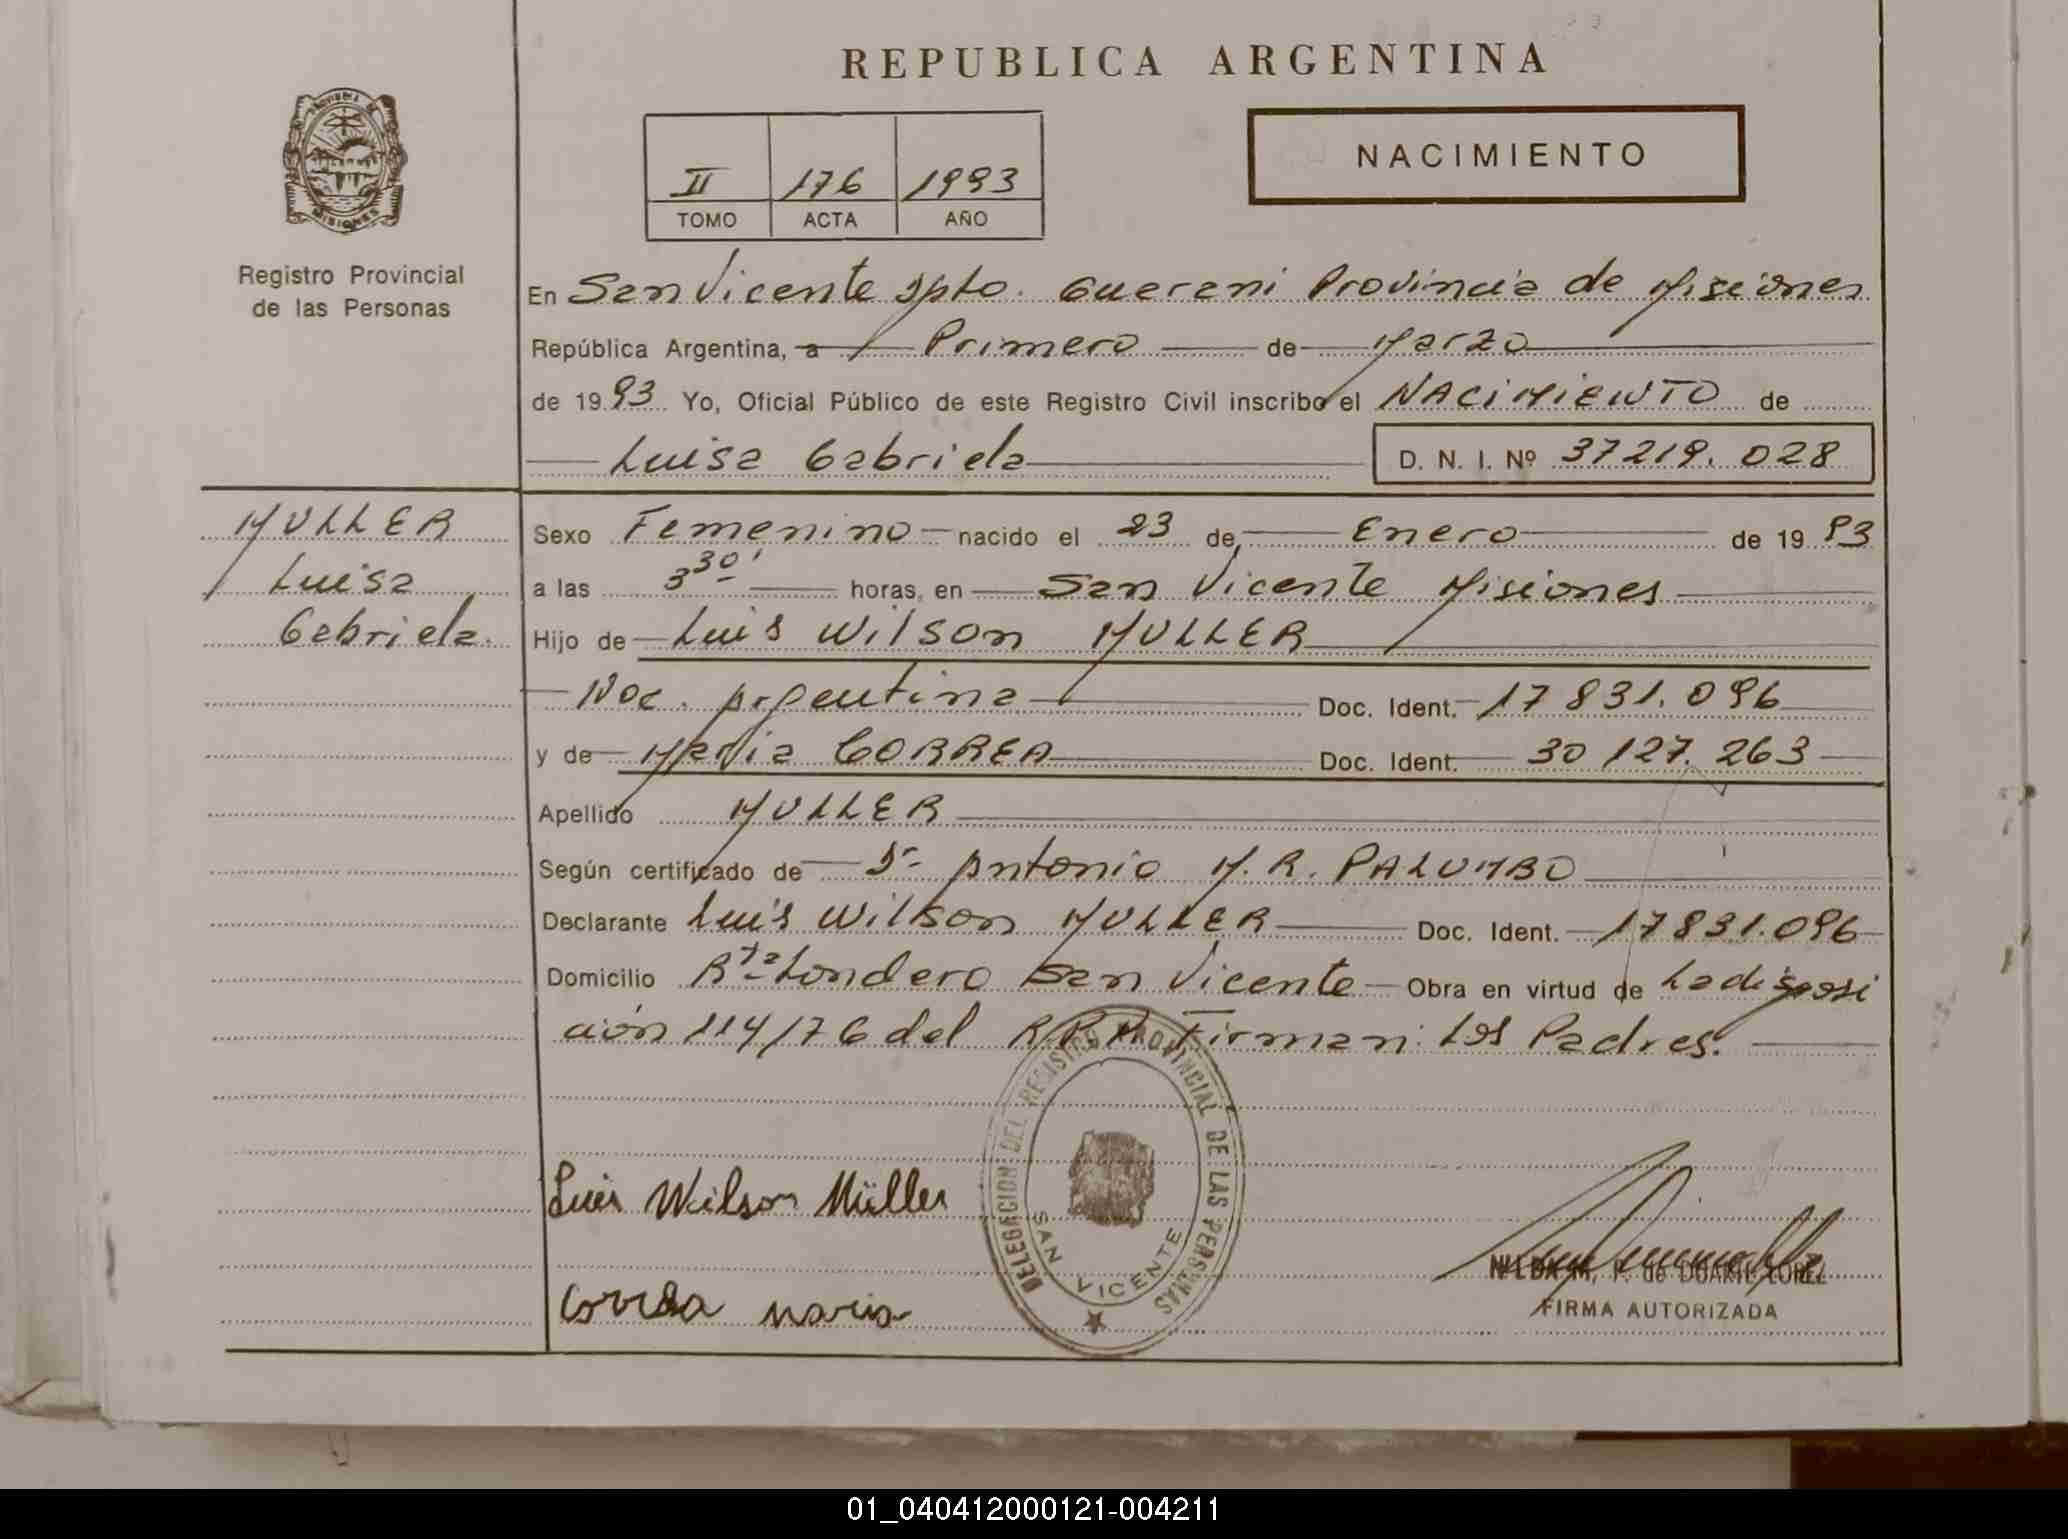 REPUBLICA ARGENTINA
PROVINCIA DE
MISIONES
Registro Provincial
de las Personas
II 176 1993
TOMO ACTA AÑO
NACIMIENTO
En San Vicente Dpto. Guarani Provincia de Misiones
República Argentina, a Primero de Marzo
de 1993 Yo, Oficial Público de este Registro Civil inscribo el NACIMIENTO de
Luisa Gabriela D. N. I. Nº 37219.028
MULLER
Luisa
Gabriela.
Sexo Femenino nacido el 23 de Enero de 1993
a las 3 30' horas, en San Vicente Misiones
Hijo de Luis Wilson MULLER
Nac. Argentina Doc. Ident. 17 831.096
y de Maria CORREA Doc. Ident. 30 127.263
Apellido MULLER
Según certificado de Dr Antonio M. R. PALUMBO
Declarante Luis Wilson MULLER Doc. Ident. 17831.096
Domicilio Rta Londero San Vicente Obra en virtud de La disposi
ción 114/76 del R.P.P. Firman: Los Padres.
DELEGACION DEL REGISTRO PROVINCIAL DE LAS PERSONAS
SAN VICENTE
Luis Wilson Müller
Correa Maria
NILDA M. F. de DUARTE LOPEZ
FIRMA AUTORIZADA
01_040412000121-004211